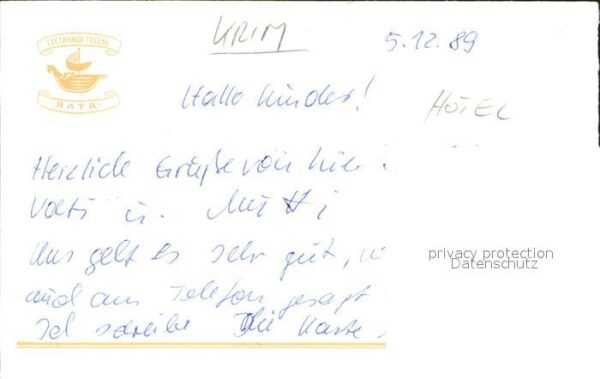 ГОСТИНИЦА-ГОТЕЛЬ
ЯЛТА
KRIM
5.12.89
Hallo Kinder!
HOTEL
Herzliche Grüße von hier.
Vati u. Mutti
Uns geht es sehr gut, w
auch am Telefon gesagt
Ich schreibe Die Karte
privacy protection
Datenschutz